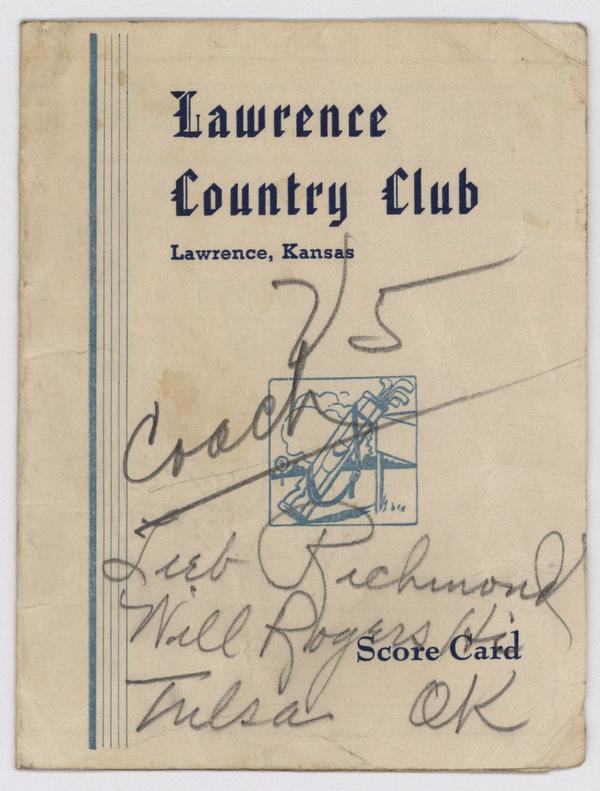 Lawrence
Country Club
Lawrence, Kansas
75
Coach
Lieb Richmond
Will Rogers Hi
Score Card
Tulsa OK